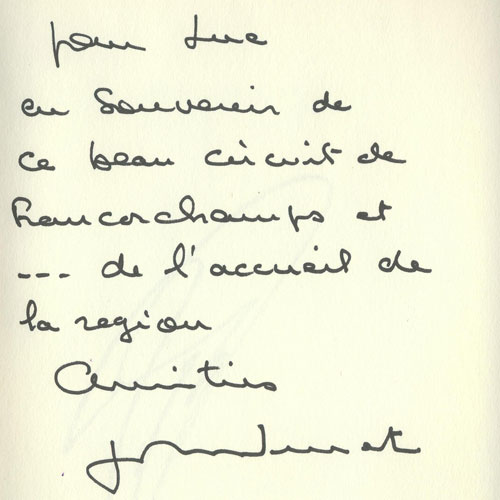 pour Luc
en souvenir de
ce beau circuit de
Francorchamps et
--- de l'accueil de
la region
Amitiés